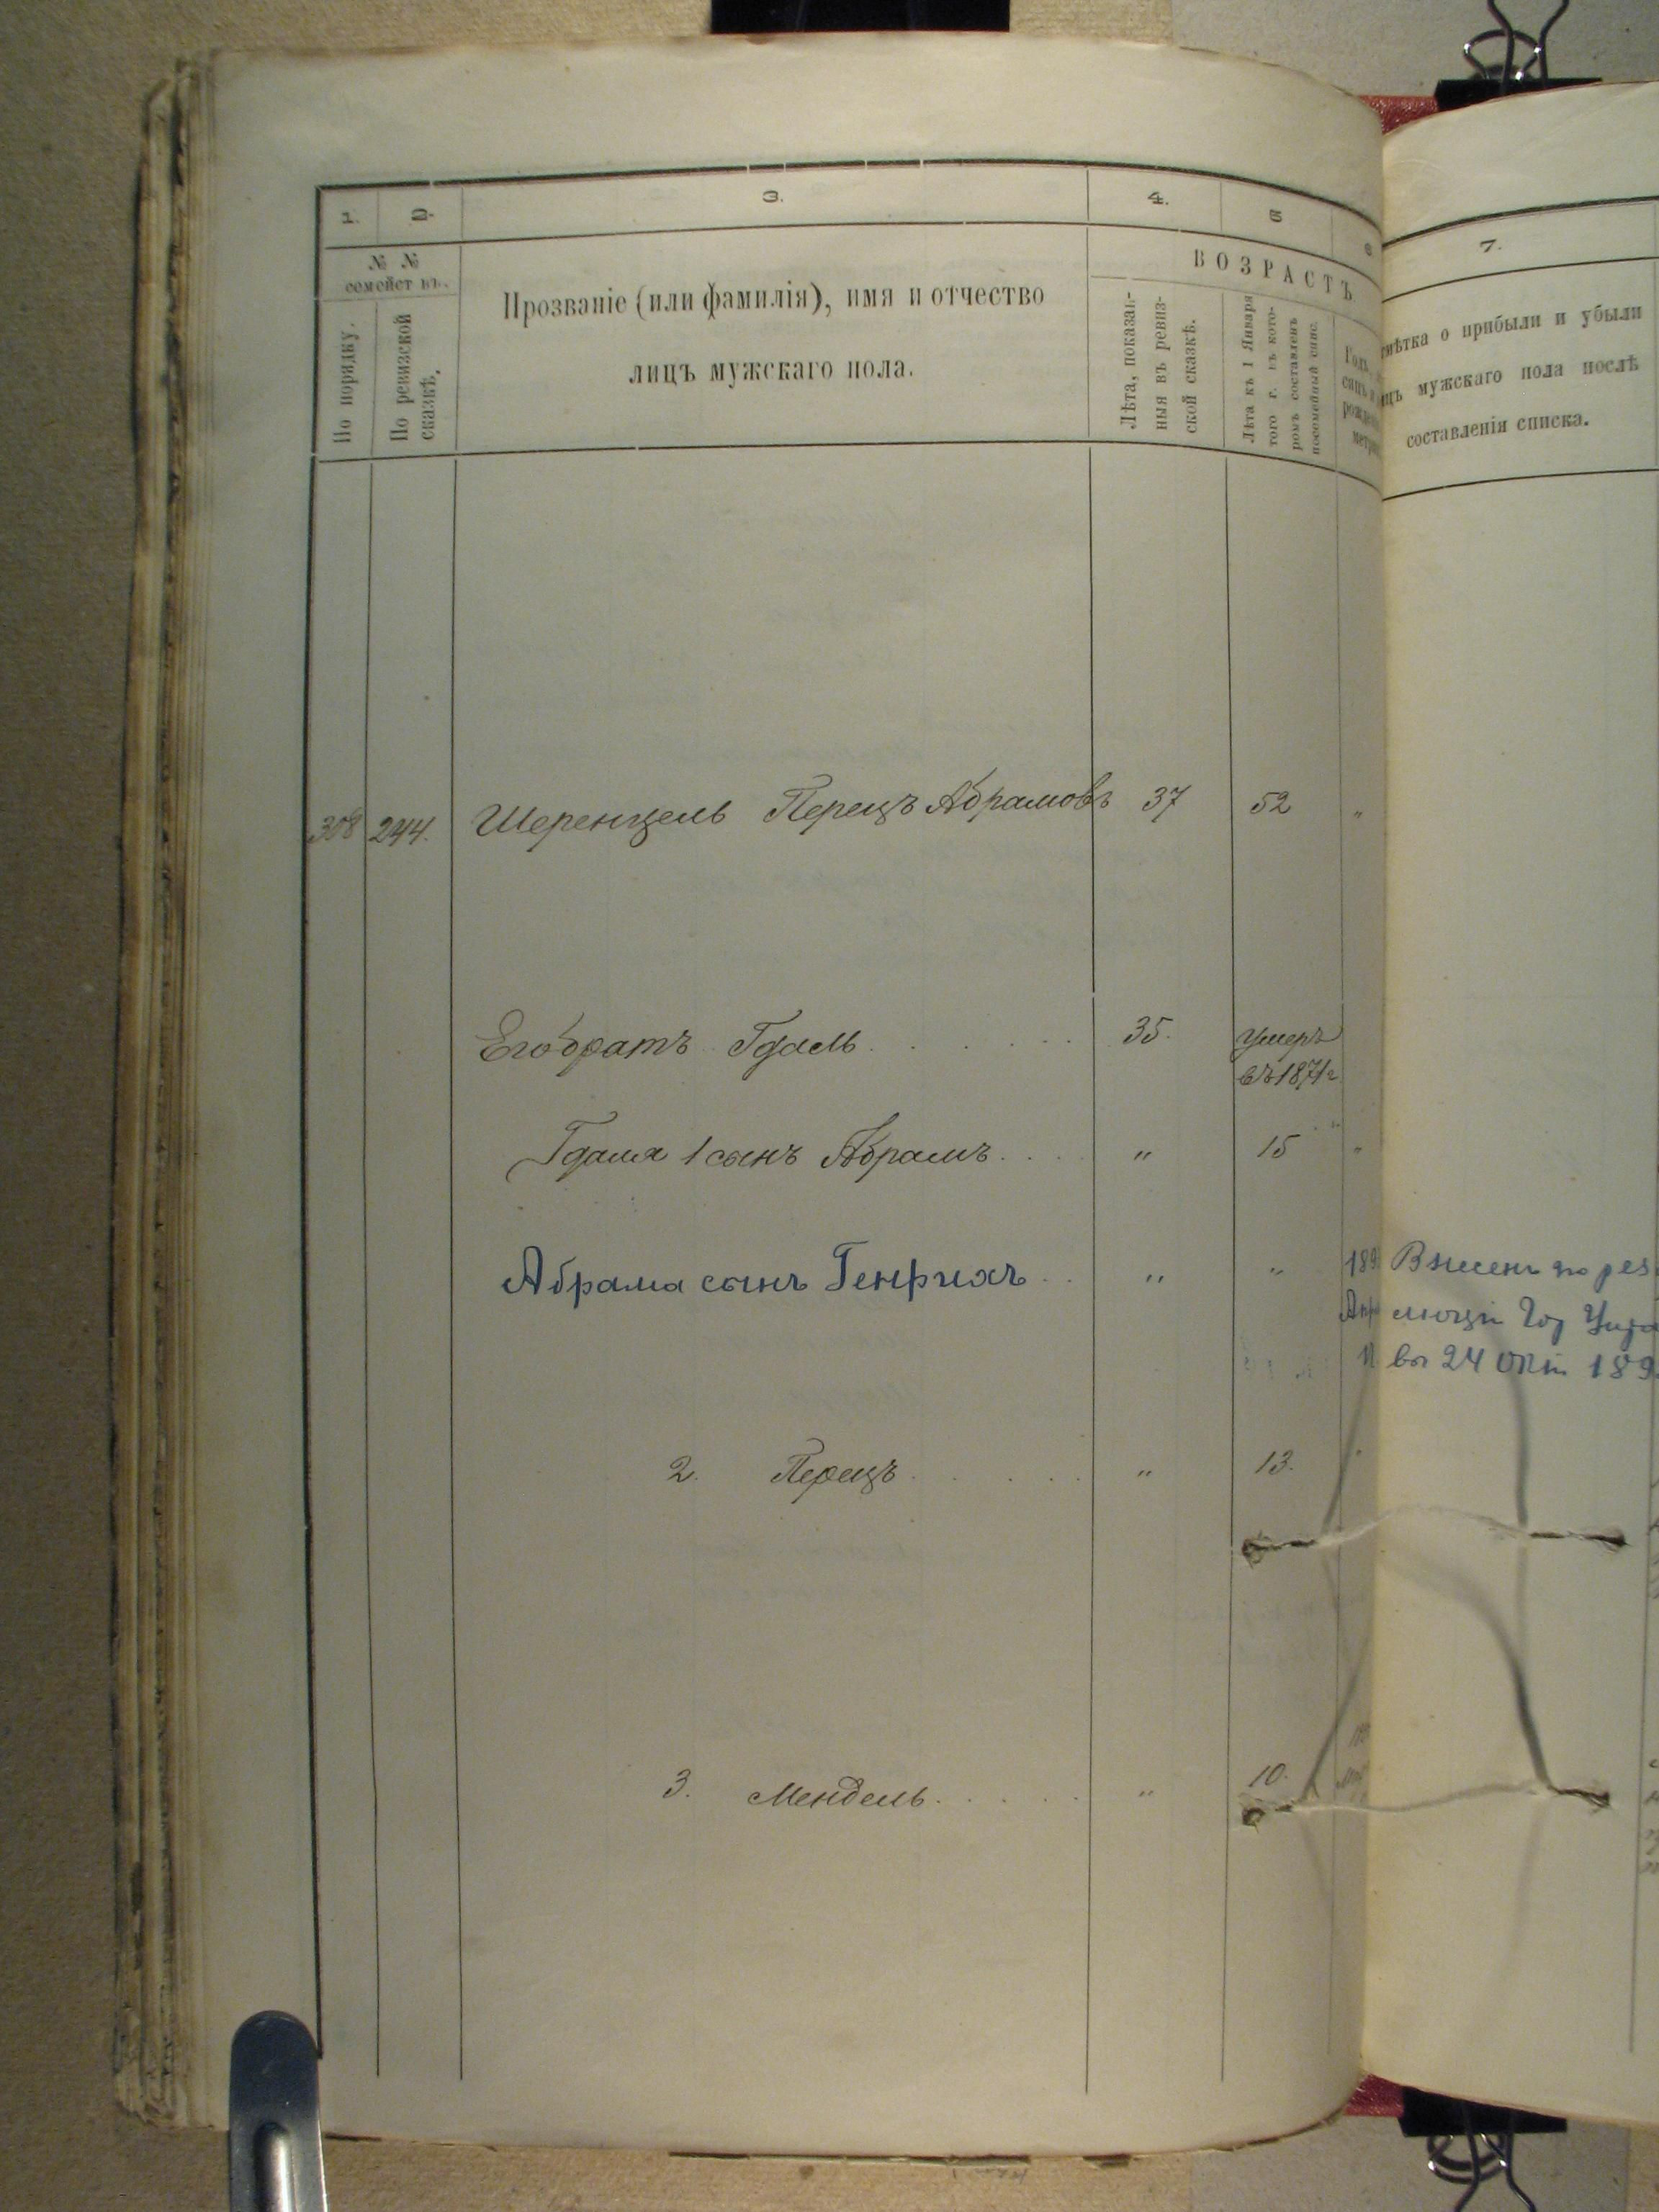 1. 2. 3. 4. 5 6
7.
№ №
семействъ.
По порядку.
По ревизской
сказкѣ.
Прозваніе (или фамилія), имя и отчество
лицъ мужскаго пола.
ВОЗРАСТЪ
Лѣта, показан-
ныя въ ревиз-
ской сказкѣ.
Лѣта къ 1 Января
того г. въ кото-
ромъ составленъ
посемейный спис.
Годъ
рожден
мѣтка о прибыли и убыли
мужскаго пола послѣ
составленія списка.
308 244. Шеренцель Перецъ Абрамовъ 37 52 "
Его братъ Гдаль . . . . . . 35. умеръ
въ 1871 г
Гдаля 1 сынъ Абрамъ . . . " 15 "
Абрама сынъ Генрихъ . . " " 189
Апр
Внесенъ по рез
люціи Гор
въ 24 Окт 189
2. Перецъ . . . . . " 13. "
3. Мендель . . . . . " 10.